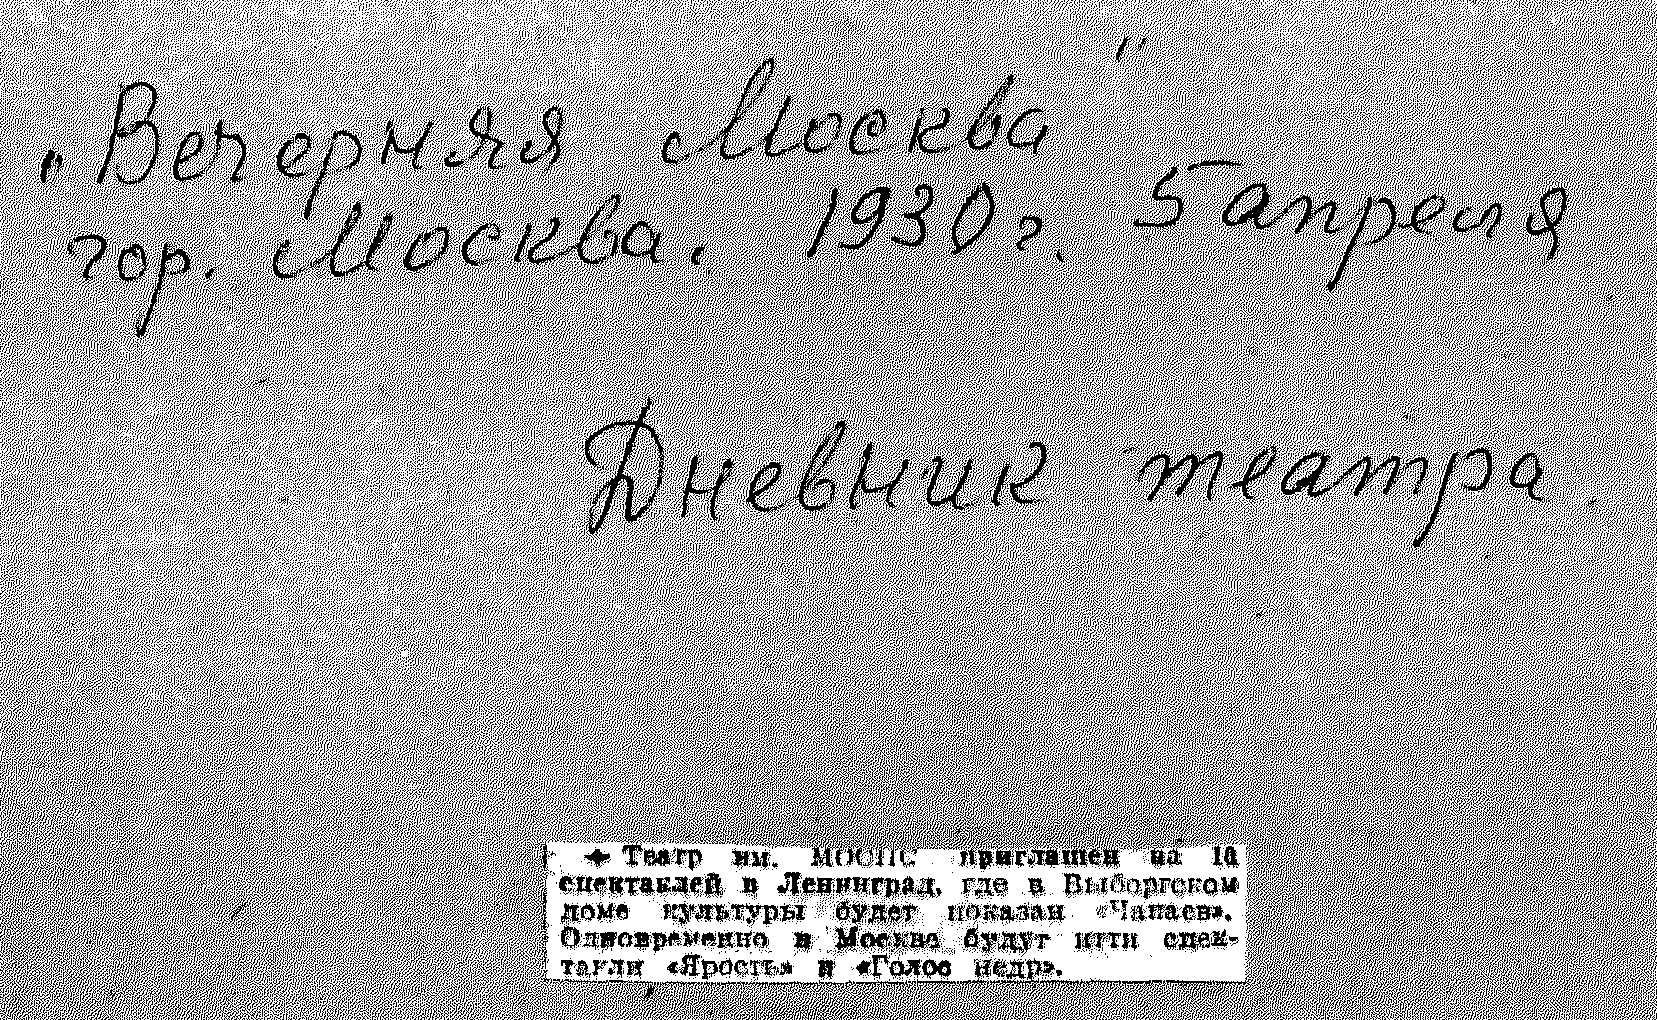 „Вечерняя Москва"
гор. Москва. 1930 г. 5 апреля
Дневник театра
Театр им. МОСПС приглашен на 10
спектаклей в Ленинград, где в Выборгском
доме культуры будет показан «Чапаев».
Одновременно в Москве будут итти спек-
такли «Ярость» и «Голос недр».